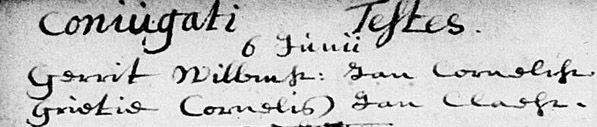 Coniugati Testes.
6 Junii
Gerrit Wilmsz: Jan Cornelisz
Grietie Cornelis) Jan Claesz.